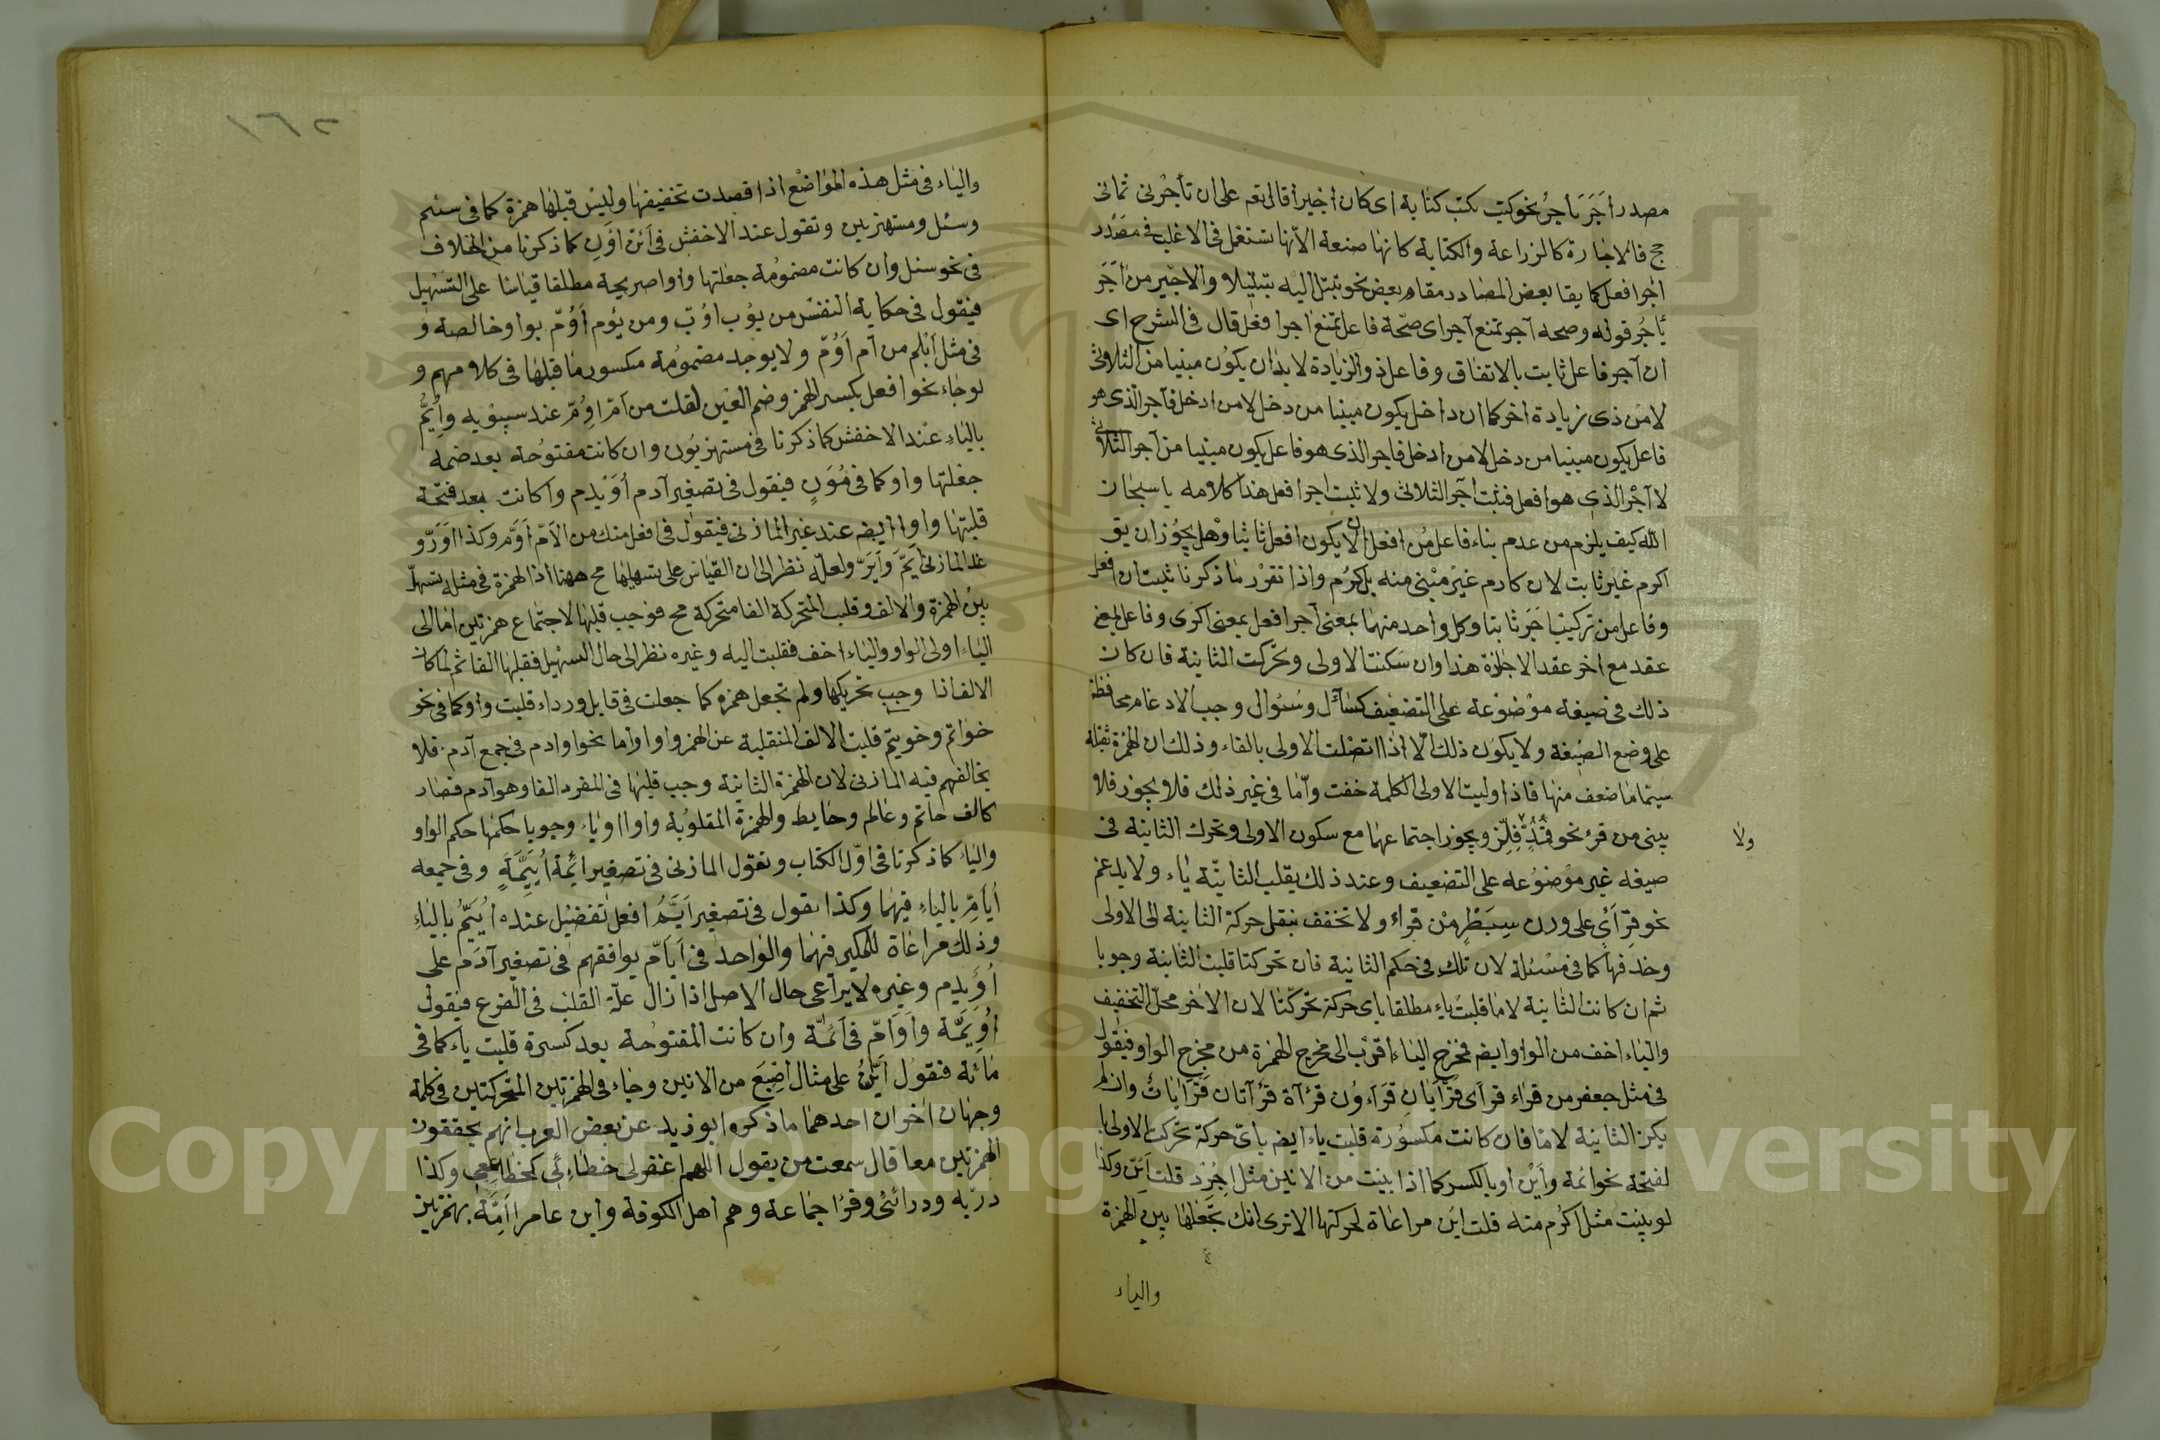 مصدر اجَرَ يأجرُ نحو كتب يكتب كتابة اى كان اجيرا قال تعم على ان تأجرنى ثمانى
حج فالاجارة كالزراعة والكتابة كانها صنعة الا انها تستعمل فى الاغلب فى مصدر
اجرا فعل كما يقا بعض المصادر مقام بعض نحو تبتل اليه تبتيلا والاجير من اجر
يأجر قوله وصحه آجر تمنع آجر اى صحّة فاعل تمنع اجرا فعل قال فى الشرح اى
ان آجر فاعل ثابت بالاتفاق وفاعل ذو الزيادة لا بد ان يكون مبنيا من الثلاثى
لا من ذى زيادة اخر كما ان داخل يكون مبنيا من دخل لا من ادخل فآجر الذى هو
فاعل يكون مبنيا من دخل لا من ادخل فاجر الذى هو فاعل يكون مبنيا من آجر الثلاثى
لا آجر الذى هو افعل فثبت اجر الثلاثى ولا ثبت اجرا فعل هذا كلامه يا سبحان
الله كيف يلزم من عدم بناء فاعل من افعل ان لا يكون افعل ثابتا وهل يجوز ان يق
اكرم غير ثابت لان كارم غير مبنى منه بل كرُم واذا تقرر ما ذكرنا ثبت ان افعل
وفاعل من تركيب اجَرَ ثابتا وكل واحد منهما بمعنى آجر افعل بمعنى اكرى وفاعل بمعنى
عقد مع اخر عقد الاجارة هذا وان سكنت الاولى وتحركت الثانية فان كان
ذلك فى صيغة موضوعة على التضعيف كسأّل وسُئوال وجب الادغام محافظة
على وضع الصيغة ولا يكون ذلك الّا اذا اتصلت الاولى بالفاء وذلك ان الهمزة ثقيلة
سيما ما ضعف منها فاذا وليت الاولى الكلمة خفت وامّا فى غير ذلك فلا يجوز فلا
يبنى من قرء نحو قُمُدٍّ ولا فِلِزّ ويجوز اجتماعهما مع سكون الاولى وتحرك الثانية فى
صيغة غير موضوعه على التضعيف وعند ذلك يقلب الثانية ياء ولا يدغم
نحو قِرَأى على وزن سِبَطْرٍ من قرأ ولا تخفف بنقل حركة الثانية الى الاولى
وحذفها كما فى مسئلة لان تلك فى حكم الثانية فان تحركتا قلبت الثانية وجوبا
ثم ان كانت الثانية لاما قلبت ياء مطلقا باى حركة تحركتا لان الاخر محل التخفيف
والياء اخف من الواو وايضم فمخرج الياء اقرب الى مخرج الهمزة من مخرج الواو فيقول
فى مثل جعفر من قراء قرأى قرأيان قراءون قرآة قرآتان قرأيات وان لم
يكن الثانية لاما فان كانت مكسورة قلبت ياء ايضم باىّ حركة تحركت الاولى با
لفتحة نحو ائمة وأينّ او بالكسر كما اذا بنيت من الانين مثل اِجْرِد قلت اينّ وكذا
لو بنيت مثل اكرم منه قلت اين مراعاة لحركتها الا ترى انك تجعلها بين الهمزة
والياء
١٦٢
والياء فى مثل هذه المواضع اذا قصدت تخفيفها وليس قبلها همزة كما فى سئم
وسئل ومستهزئين وتقول عند الاخفش فى أئن اوَنِ كما ذكرنا من الخلاف
فى نحو سئل وان كانت مضمومة جعلتها واوا صريحة مطلقا قياسا على التسهيل
فيقول فى حكاية النفس من يؤب اوُبّ ومن يؤم أَوُمّ بواو خالصة و
فى مثل اُبْلم من آم اَوُمّ ولا يوجد مضمومة مكسور ما قبلها فى كلامهم و
لو جاء نحو افعل بكسر الهمز وضم العين لقلت من امّ اوُمّ عند سيبويه وايُمّ
بالياء عند الاخفش كما ذكرنا فى مستهزيون وان كانت مفتوحة بعد ضمه
جعلتها واو كما فى مُوَنٍ فيقول فى تصغير آدم أُوَيْدِم وا كانت بعد فتحة
قلبتها واوا ايضم عند غير المازنى فيقول فى افعل منك من الاَمّ أَوَمّ وكذا اوَرّ و
عند المازنى أيَمّ وأيَرّ ولعلّه نظر الى ان القياس على تسهيلها مح ههنا اذ الهمزة فى مثله تسهل
بين الهمزة والالف وقلب المتحركة الفا متحركة مح فوجب قلبها لاجتماع همزتين اما الى
الياء اولى الواو والياء اخف فقلبت اليه وغيره نظر الى حال التسهيل فقلبها الفا ثم لما كان
الالف اذا وجب تحريكها ولم تجعل همزه كما جعلت فى قايل ورداء قلبت واو كما فى نحو
خواتم وخويتم قلبت الالف المنقلبة عن الهمز واوا واما نحو اوادم فى جمع آدم فلا
يخالفهم فيه المازنى لان الهمزة الثانية وجب قلبها فى المفرد الفا وهو آدم فصار
كالف حاتم وعالم وحايط والهمزة المقلوبة واوا او ياء وجوبا حكمها حكم الواو
والياء كما ذكرنا فى اوّل الكتاب ويقول المازنى فى تصغير ائمة أُيَيِّمَةٍ وفى جمعه
أَيَامّ بالياء فيهما وكذا يقول فى تصغير أيَمّ افعل تفضيل عنده اُيَيمّ بالياء
وذلك مراعاة للمكبر فيهما والواحد فى أيامّ يوافقهم فى تصغير آدم على
أُوَيدم وغيره لا يراعى حال الاصل اذا زال علّة القلب فى الفرع فيقول
أُوَيمّة وأَوَامّ فى ائمّة وان كانت المفتوحة بعد كسرة قلبت ياء كما فى
مائة فنقول اينّ على مثال اِصْبَع من الانين وجاء فى الهمزتين المتحركتين فى كلمة
وجهان اخران احدهما ما ذكره ابو زيد عن بعض العرب انهم يحققون
الهمزتين معا قال سمعت من يقول اللهم اغفر لى خطائئى كخطاععى وكذا
دريّه ودرائئ وقرا جماعة وهم اهل الكوفة وابن عامر اَئِمَّة بهمزتين